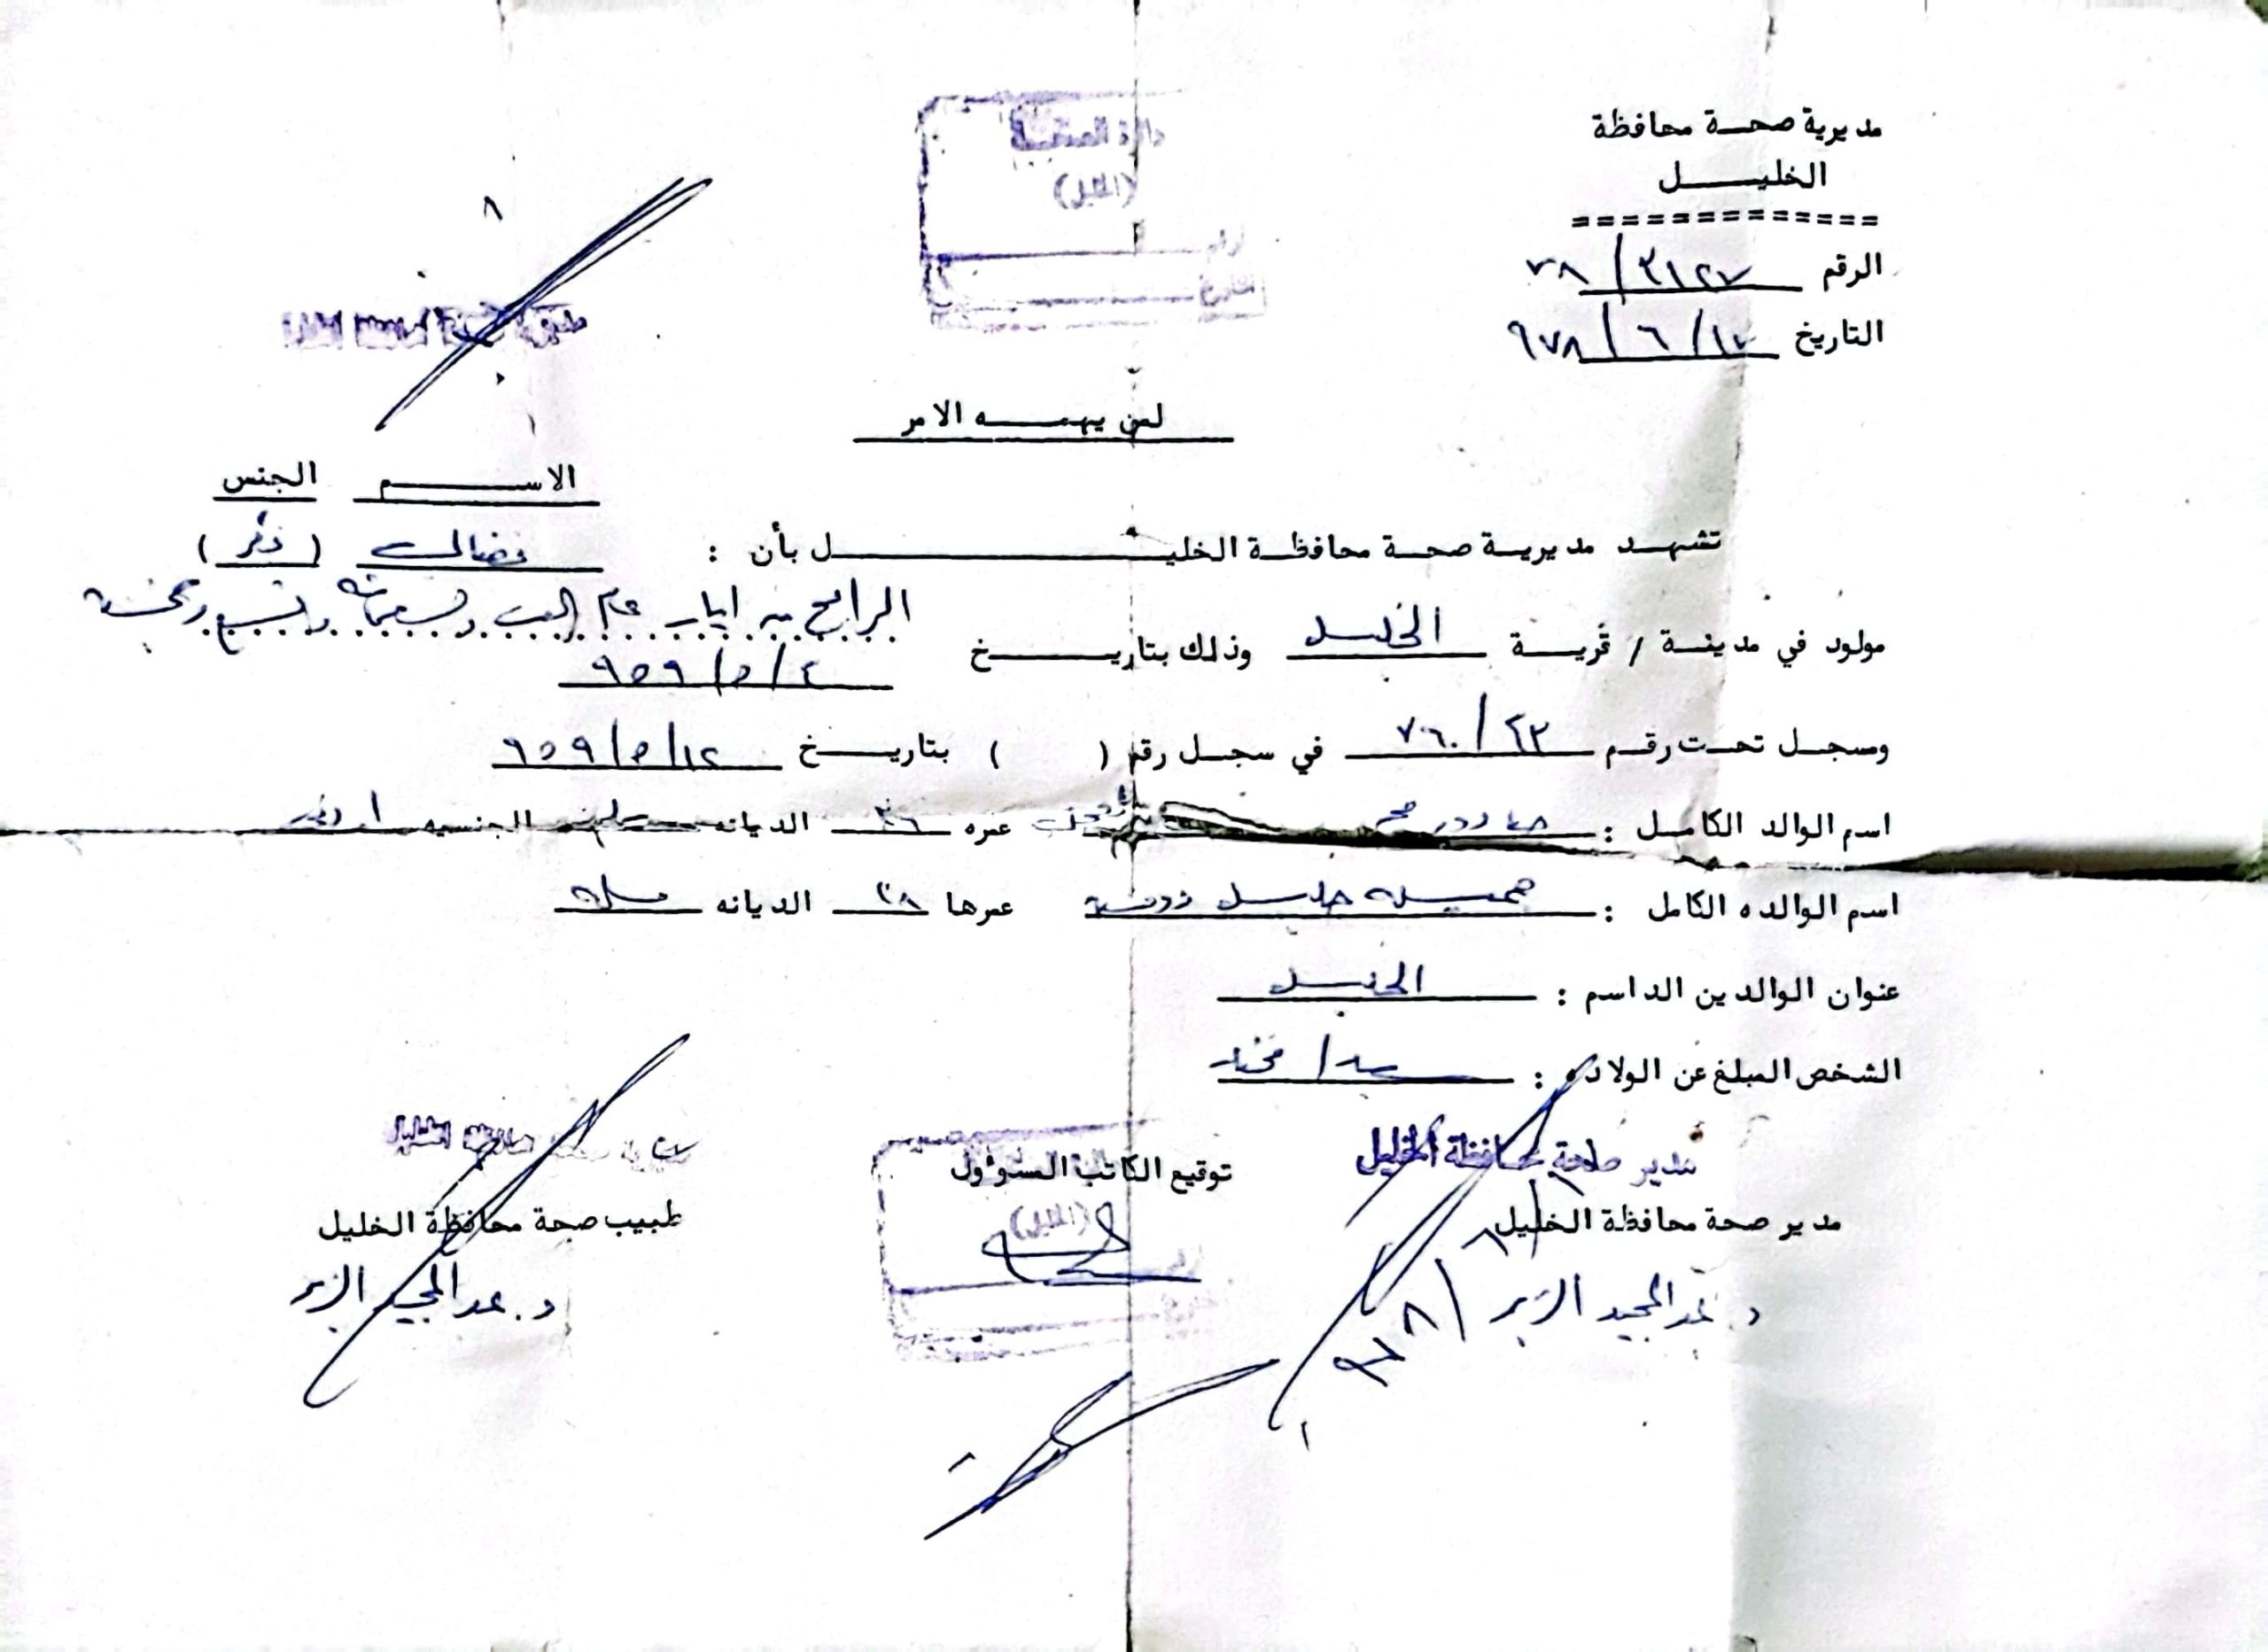 مديرية صحة محافظة
الخليل
=============
الرقم ٣١٢٧ / ٧٨
التاريخ ١٧ / ٦ / ٩٧٨
دائرة الصحة
(الخليل)
الرقم
التاريخ
لمن يهمه الامر
الاسم الجنس
تشهد مديرية صحة محافظة الخليل بأن : نضال ( ذكر )
مولود في مدينة / قرية الخليل وذلك بتاريخ الرابع من ايار عام الف وتسعمائة وتسع وخمسة
٤ / ٥ / ٩٥٩
ومسجل تحت رقم ٢٣ / ٧٦٠ في سجل رقم ( ) بتاريخ ١٢ / ٥ / ٩٥٩
اسم الوالد الكامل : عمره ٣٦ الديانه الجنسيه
اسم الوالده الكامل : خليل عمرها ٢٨ الديانه مسلمه
عنوان الوالدين الداسم : الخليل
الشخص المبلغ عن الولاده : مختار
مدير صحة محافظة الخليل
توقيع الكاتب المسوءول
(الخليل)
مدير صحة محافظة الخليل
طبيب صحة محافظة الخليل
د. عبدالمجيد الزير
د. عبدالمجيد الزير